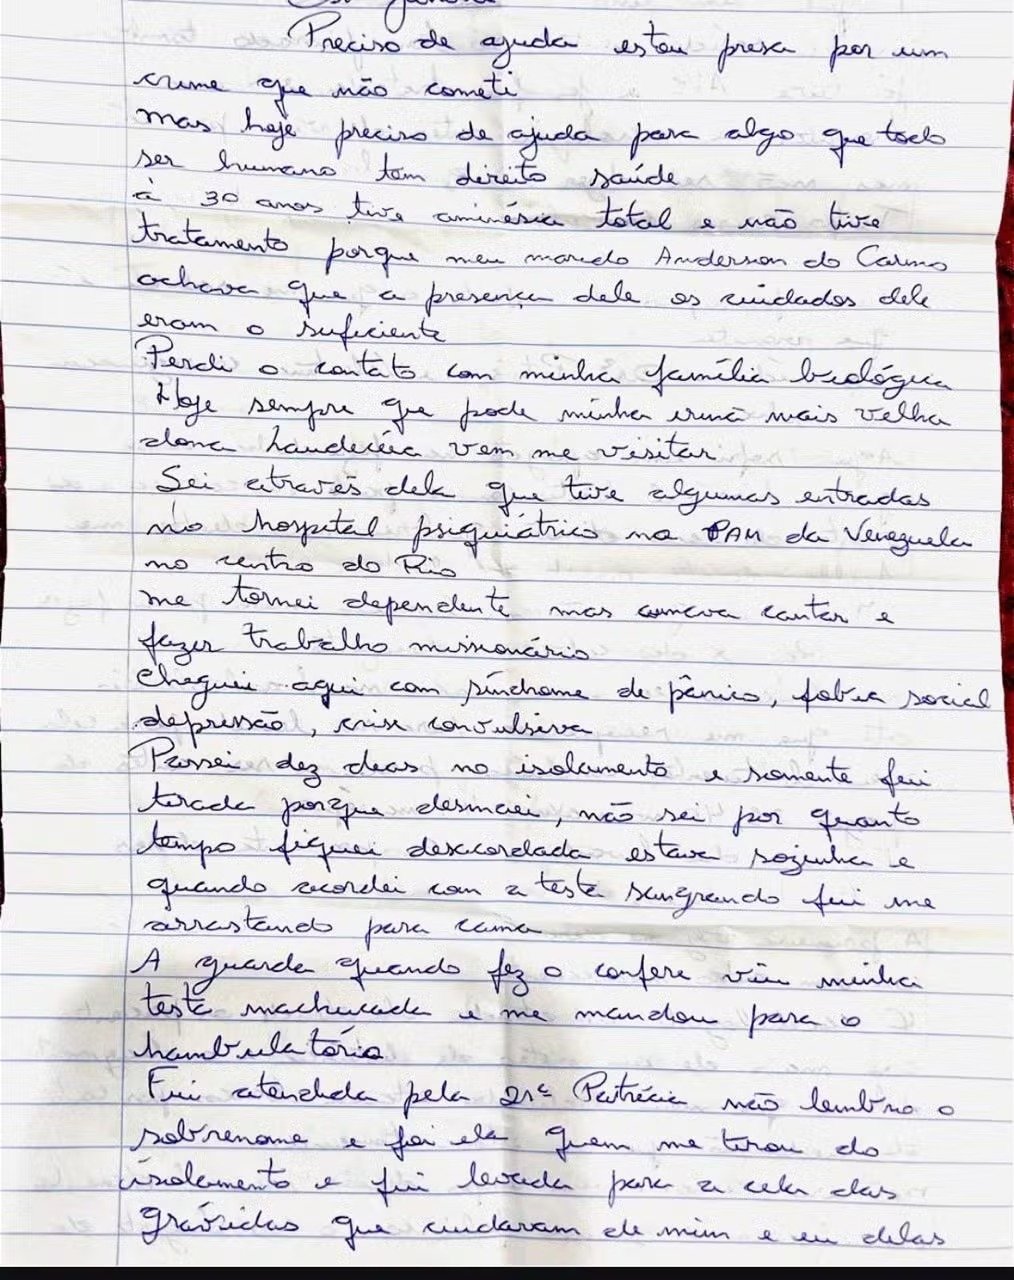 Preciso de ajuda estou presa por um
crime que não cometi
mas hoje preciso de ajuda para algo que todo
ser humano tem direito saúde
à 30 anos tive aminésia total e não tive
tratamento porque meu marido Anderson do Carmo
achava que a presença dele os cuidados dele
eram o suficiente
Perdi o contato com minha família biológica
Hoje sempre que pode minha irmã mais velha
dona vem me visitar
Sei através dela que tive algumas entradas
no hospital psiquiátrico no PAM da Venezuela
no centro do Rio
me tornei dependente mas amava cantar e
fazer trabalho missionário
cheguei aqui com síndrome de pânico, fobia social
depressão, crise convulsiva
Passei dez dias no isolamento e somente fui
tirada porque desmaiei, não sei por quanto
tempo fiquei desacordada estava sozinha e
quando acordei com a testa sangrando fui me
arrastando para cama
A guarda quando fez o confere viu minha
testa machucada e me mandou para o
hambulatório
Fui atendida pela Patrícia não lembro o
sobrenome e foi ela quem me tirou do
isolamento e fui levada para a cela das
grávidas que cuidaram de mim e eu delas